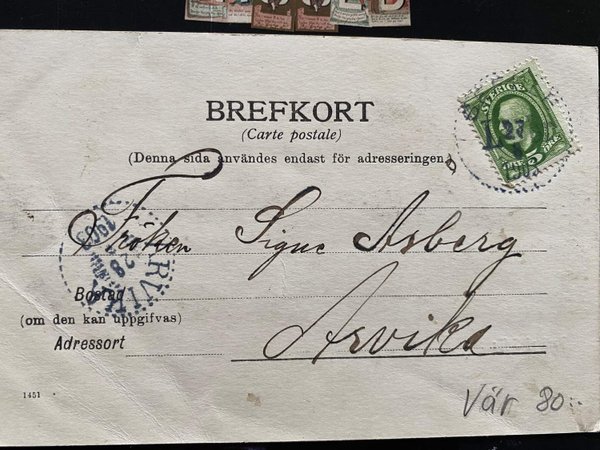 BREFKORT
(Carte postale)
(Denna sida användes endast för adresseringen.)
SVERIGE
27
1903
FEM 5 ÖRE
Fröken Signe Asberg
ARVIKA
28
1903
Bostad
(om den kan uppgifvas)
Arvika
Adressort
1451
Vär 80:-